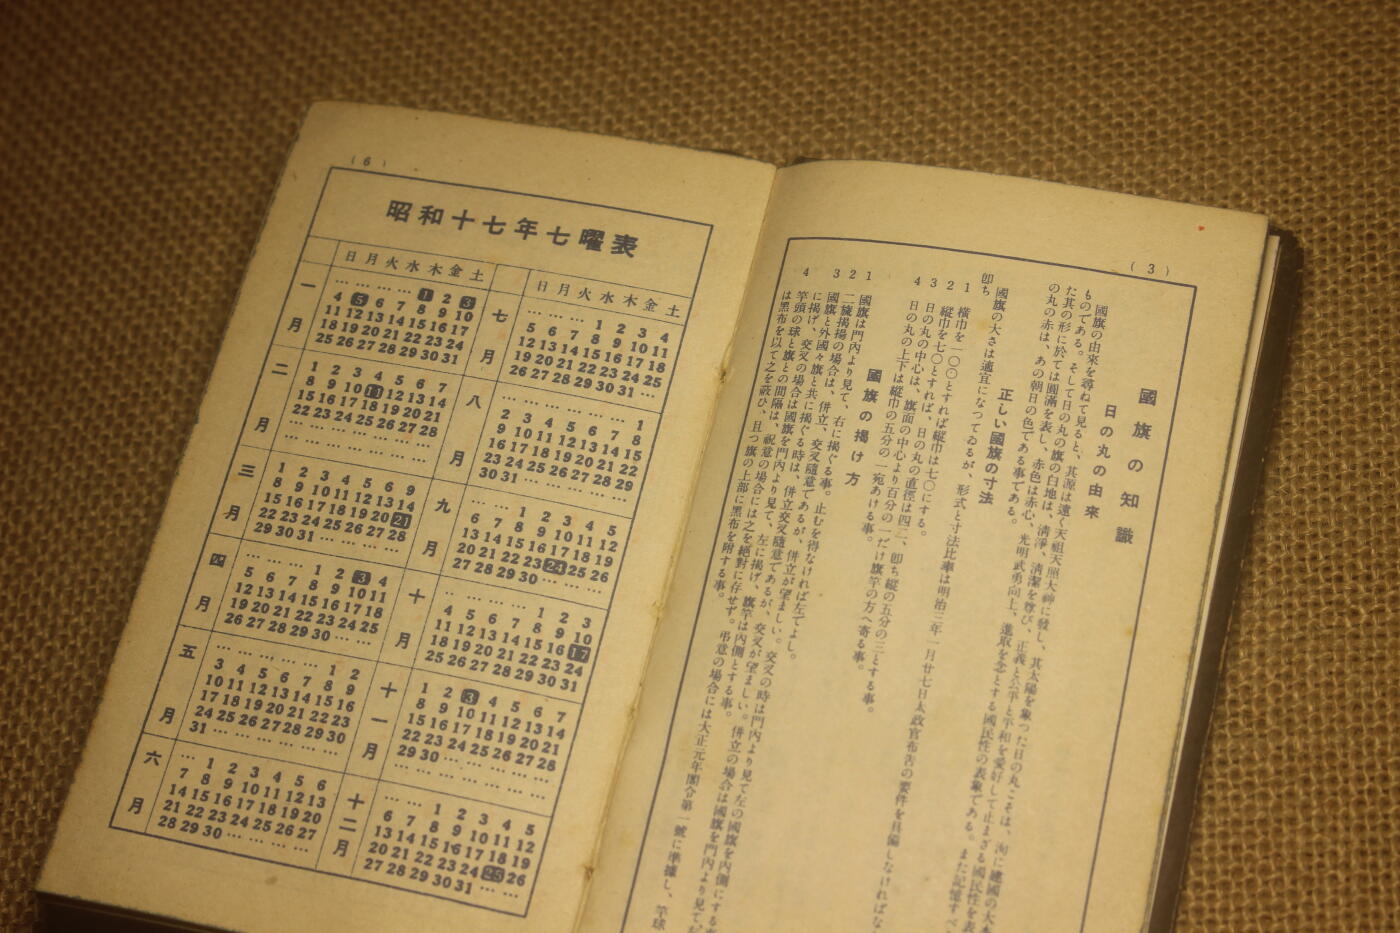 (3)
國旗の知識
日の丸の由來
國旗の由來を尋ねて見ると、其源は遠く天祖天照大神に發し、其太陽を象つた日の丸こそは、洵に建國の大本
ものである。そして日の丸の旗の白地は、淸淨、淸潔を尊び、正義と公平と平和を愛好して止まざる國民性を表
た其の形に於ては圓滿を表し、赤色は赤心、光明武勇向上、進取を念とする國民性の表象である。また記憶すべ
の丸の赤は、あの朝日の色である事である。
正しい國旗の寸法
國旗の大さは適宜になつてゐるが、形式と寸法比率は明治三年一月廿七日太政官布告の要件を具備しなければな
卽ち
1 橫巾を一〇〇とすれば縱巾は七〇にする。
2 縱巾を七〇とすれば、日の丸の直徑は四二、卽ち縱の五分の三とする事。
3 日の丸の中心は、旗面の中心より百分の一だけ旗竿の方へ寄る事。
4 日の丸の上下は縱巾の五分の一宛あける事。
國旗の揭け方
1 國旗は門內より見て、右に揭ぐる事。止むを得なければ左でよし。
2 二旒揭揚の場合は、併立、交叉隨意であるが、併立が望ましい。交叉の時は門內より見て左の國旗を內側にする
3 國旗と外國々旗と共に揭ぐる時は、併立交叉隨意であるが、交叉が望ましい。併立の場合は國旗を門內より見て
に揭げ、交叉の場合は國旗を門內より見て、左に揭げ、旗竿は內側とする事。
4 竿頭の球と旗との間隔は、祝意の場合には之を絕對に存せず。弔意の場合には大正元年閣令第一號に準據し、竿球
は黑布を以て之を蔽ひ、且つ旗の上部に黑布を附する事。
(6)
昭和十七年七曜表
日月火水木金土
一月
… … … … 1 2 3
4 5 6 7 8 9 10
11 12 13 14 15 16 17
18 19 20 21 22 23 24
25 26 27 28 29 30 31
二月
1 2 3 4 5 6 7
8 9 10 11 12 13 14
15 16 17 18 19 20 21
22 23 24 25 26 27 28
… … … … … … …
三月
1 2 3 4 5 6 7
8 9 10 11 12 13 14
15 16 17 18 19 20 21
22 23 24 25 26 27 28
29 30 31 … … … …
四月
… … … 1 2 3 4
5 6 7 8 9 10 11
12 13 14 15 16 17 18
19 20 21 22 23 24 25
26 27 28 29 30 … …
五月
… … … … … 1 2
3 4 5 6 7 8 9
10 11 12 13 14 15 16
17 18 19 20 21 22 23
24 25 26 27 28 29 30
31 … … … … … …
六月
… 1 2 3 4 5 6
7 8 9 10 11 12 13
14 15 16 17 18 19 20
21 22 23 24 25 26 27
28 29 30 … … … …
日月火水木金土
七月
… … … 1 2 3 4
5 6 7 8 9 10 11
12 13 14 15 16 17 18
19 20 21 22 23 24 25
26 27 28 29 30 31 …
八月
… … … … … … 1
2 3 4 5 6 7 8
9 10 11 12 13 14 15
16 17 18 19 20 21 22
23 24 25 26 27 28 29
30 31 … … … … …
九月
… … 1 2 3 4 5
6 7 8 9 10 11 12
13 14 15 16 17 18 19
20 21 22 23 24 25 26
27 28 29 30 … … …
十月
… … … … 1 2 3
4 5 6 7 8 9 10
11 12 13 14 15 16 17
18 19 20 21 22 23 24
25 26 27 28 29 30 31
十一月
1 2 3 4 5 6 7
8 9 10 11 12 13 14
15 16 17 18 19 20 21
22 23 24 25 26 27 28
29 30 … … … … …
十二月
… … 1 2 3 4 5
6 7 8 9 10 11 12
13 14 15 16 17 18 19
20 21 22 23 24 25 26
27 28 29 30 31 … …